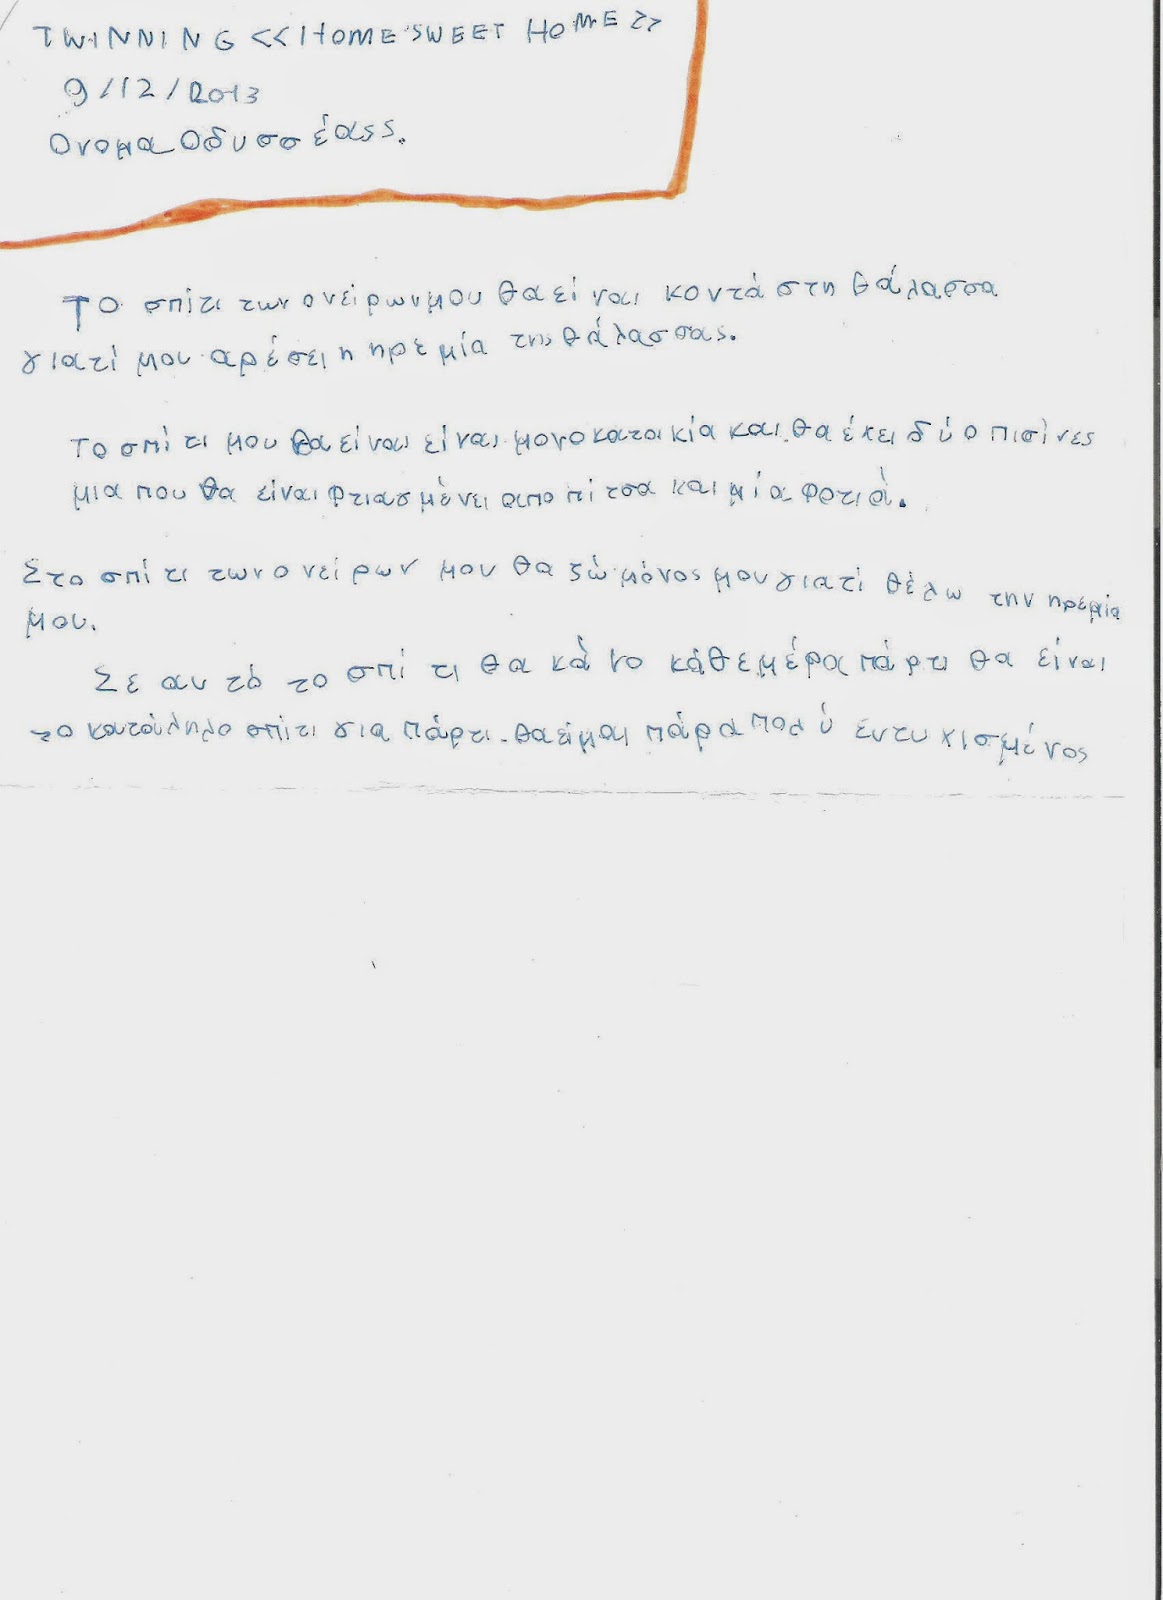 TWINNING <<HOME SWEET HOME>>
9/12/2013
Ονομα Οδυσσέαςς.
ΤΟ σπίτι των ονείρων μου θα είναι κοντά στη θάλασσα
γιατί μου αρέσει η ηρεμία της θάλασσας.
Το σπίτι μου θα είναι είναι μονοκατοικία και θα έχει δύο πισίνες
μια που θα είναι φτιασμένει απο πίτσα και μία φρτιά.
Στο σπίτι των ονείρων μου θα ζώ μόνος μου γιατί θέλω την ηρεμία
μου.
Σε αυτό το σπίτι θα κάνο κάθε μέρα πάρτι θα είναι
το κατάληλο σπίτι για πάρτι. θα είμαι πάρα πολύ εντυχισμένος